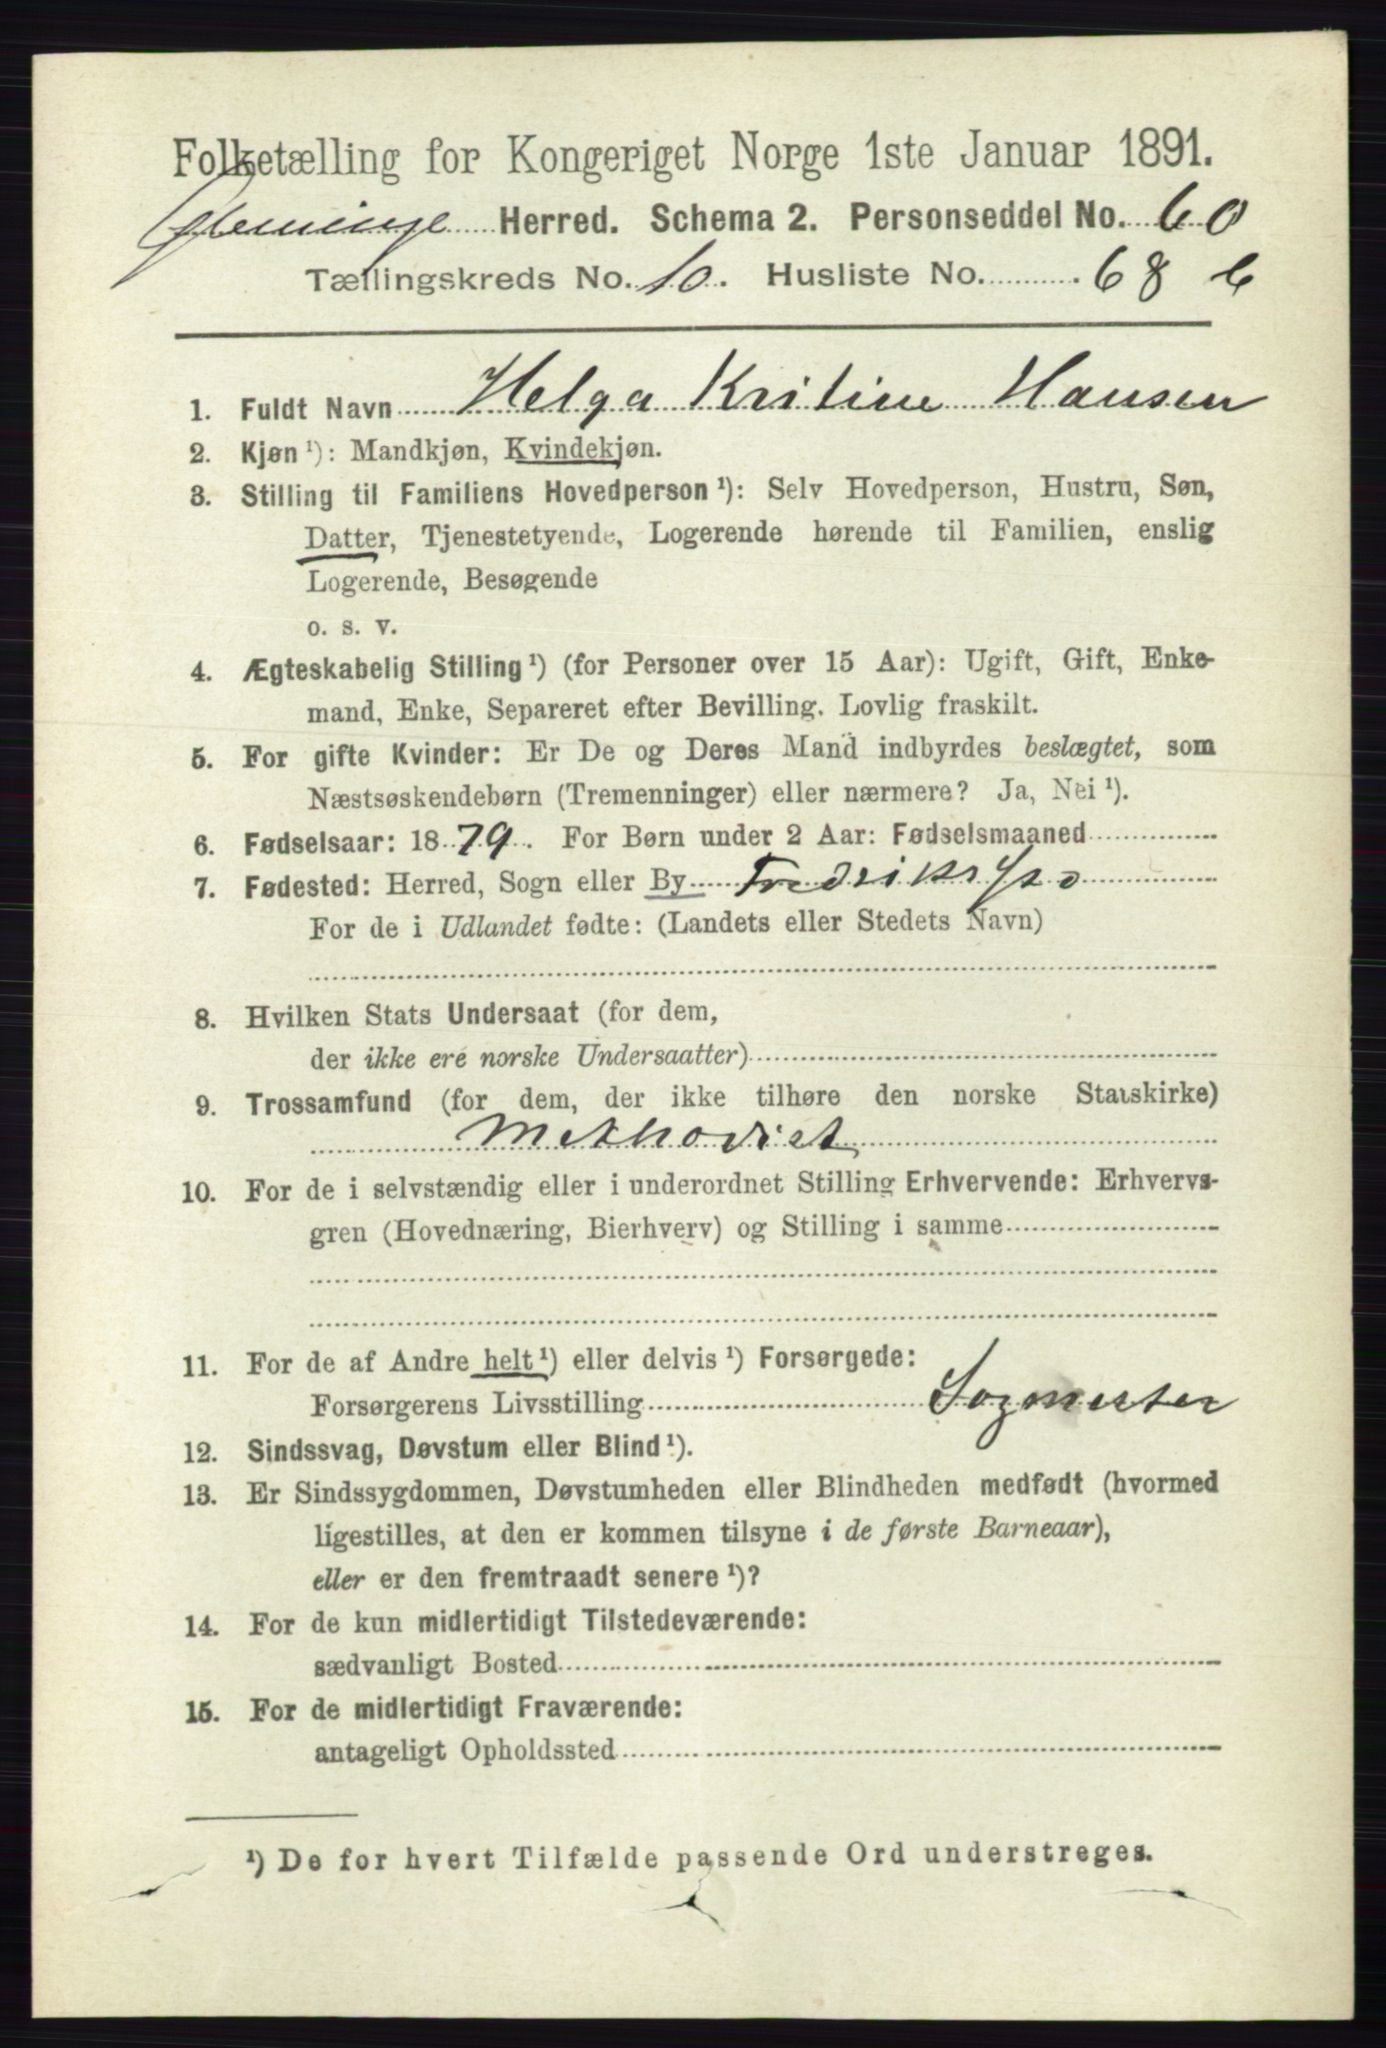 Folketælling for Kongeriget Norge 1ste Januar 1891.
Glemminge Herred. Schema 2. Personseddel No. 60
Tællingskreds No. 10. Husliste No. 68 b
1. Fuldt Navn Helga Kristine Hansen
2. Kjøn ¹): Mandkjøn, Kvindekjøn.
3. Stilling til Familiens Hovedperson ¹): Selv Hovedperson, Hustru, Søn,
Datter, Tjenestetyende, Logerende hørende til Familien, enslig
Logerende, Besøgende
o. s. v.
4. Ægteskabelig Stilling ¹) (for Personer over 15 Aar): Ugift, Gift, Enke-
mand, Enke, Separeret efter Bevilling. Lovlig fraskilt.
5. For gifte Kvinder: Er De og Deres Mand indbyrdes beslægtet, som
Næstsøskendebørn (Tremenninger) eller nærmere? Ja, Nei ¹).
6. Fødselsaar: 1879. For Børn under 2 Aar: Fødselsmaaned
7. Fødested: Herred, Sogn eller By Fredriksst
For de i Udlandet fødte: (Landets eller Stedets Navn)
8. Hvilken Stats Undersaat (for dem,
der ikke ere norske Undersaatter)
9. Trossamfund (for dem, der ikke tilhøre den norske Statskirke)
Methodist
10. For de i selvstændig eller i underordnet Stilling Erhvervende: Erhvervs-
gren (Hovednæring, Bierhverv) og Stilling i samme
11. For de af Andre helt ¹) eller delvis ¹) Forsørgede:
Forsørgerens Livsstilling Sagmester
12. Sindssvag, Døvstum eller Blind ¹).
13. Er Sindssygdommen, Døvstumheden eller Blindheden medfødt (hvormed
ligestilles, at den er kommen tilsyne i de første Barneaar),
eller er den fremtraadt senere ¹)?
14. For de kun midlertidigt Tilstedeværende:
sædvanligt Bosted
15. For de midlertidigt Fraværende:
antageligt Opholdssted
¹) De for hvert Tilfælde passende Ord understreges.